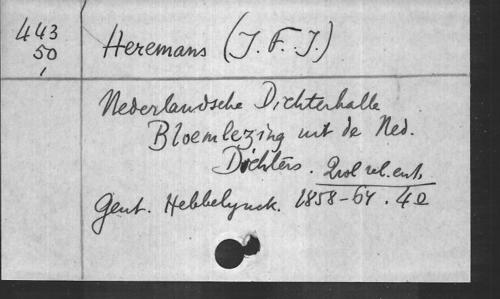 443
50
,
Heremans (J. F. J.)
Nederlandsche Dichterhalle
Bloemlezing uit de Ned.
Dichters. 2 vol rel. ent.
Gent. Hebbelynck. 1858-64. 4o